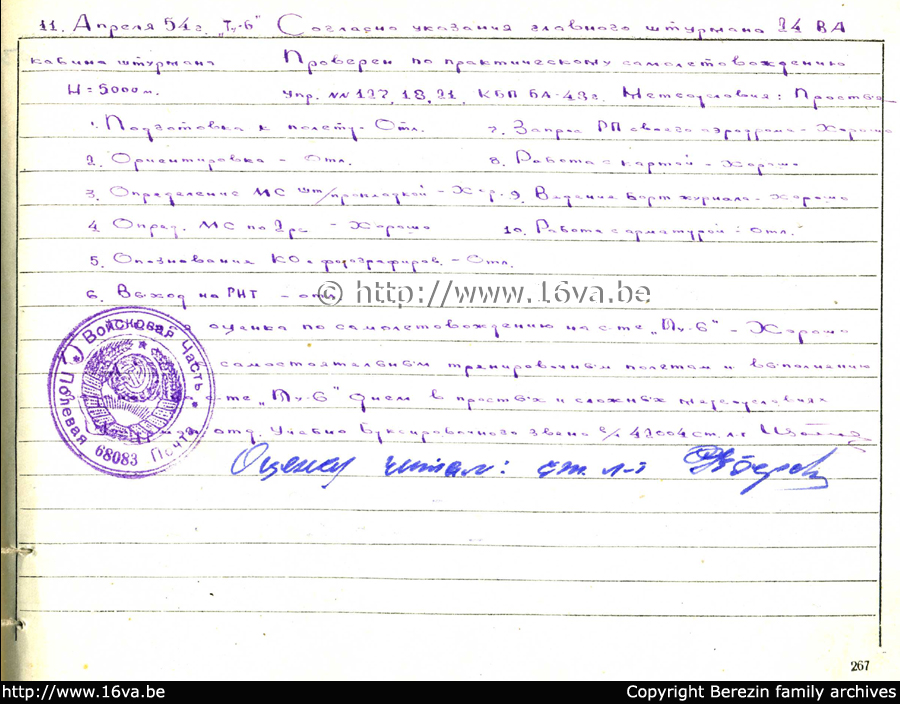 11. Апреля 54 г. „Ту-6" Согласно указания главного штурмана 24 ВА
кабина штурмана Проверен по практическому самолетовождению
Н = 5000 м. Упр. NN 127, 18, 21, КБП БА-43г. Метеоусловия: Простые
1. Подготовка к полету - Отл. 7. Запрос РП своего аэродрома - Хорошо
2. Ориентировка - Отл. 8. Работа с картой - Хорошо
3. Определение МС шт/прокладкой - Хор. 9. Ведение борт журнала - Хорошо
4. Опред. МС по - Хорошо 10. Работа с арматурой: Отл.
5. Опознавания КО и фотографиров. - Отл.
6. Выход на РНТ - отл.
© http://www.16va.be
оценка по самолетовождению на с-те - Хорошо
самостоятельным тренировочным полетам и выполнению
-те днем в простых и сложных метеоусловиях
отд. Учебно Буксировочного звена в/ч 42004 ст. л-т
Войсковая Часть Полевая Почта 68083
Оценку читал: ст. л-т
267
http://www.16va.be
Copyright Berezin family archives